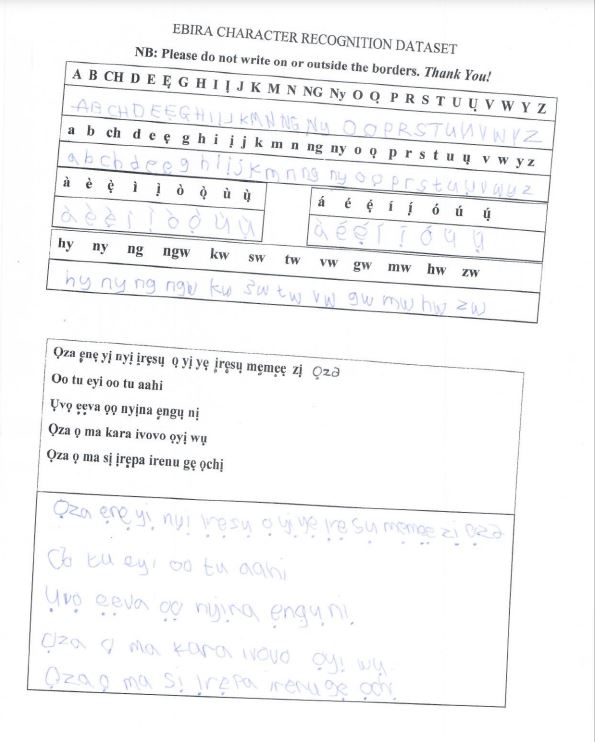 EBIRA CHARACTER RECOGNITION DATASET
NB: Please do not write on or outside the borders. Thank You!
A B CH D E Ẹ G H I Ị J K M N NG Ny O Ọ P R S T U Ụ V W Y Z
A B C H D E Ẹ G H I Ị J K M N NG Ny O Ọ P R S T U Ụ V W Y Z
a b ch d e ẹ g h i ị j k m n ng ny o ọ p r s t u ụ v w y z
a b c h d e ẹ g h i ị j k m n ng ny o ọ p r s t u ụ v w y z
à è ẹ̀ ì ị̀ ò ọ̀ ù ụ̀
á é ẹ́ í ị́ ó ú ụ́
à è ẹ̀ ì ị̀ ò ọ̀ ù ụ̀
á é ẹ́ í ị́ ó ú ụ́
hy ny ng ngw kw sw tw vw gw mw hw zw
hy ny ng ngw kw sw tw vw gw mw hw zw
Ọza ẹnẹ yị nyị ịrẹsụ ọ yị yẹ ịrẹsụ mẹmẹẹ zị Ọza
Oo tu eyi oo tu aahi
Ụvọ ẹẹva ọọ nyịna ẹngụ nị
Ọza ọ ma kara ivovo ọyị wụ
Ọza ọ ma sị ịrẹpa irenu gẹ ọchị
Ọza ẹnẹ yị nyị ịrẹsụ ọ yị yẹ ịrẹ sụ mẹmẹẹ zị ọza
Oo tu eyi oo tu aahi
Ụvọ ẹẹva ọọ nyịna ẹngụ nị.
Ọza ọ ma kara ivovo ọyị wụ.
Ọza ọ ma sị ịrẹpa irenu gẹ ọchị.